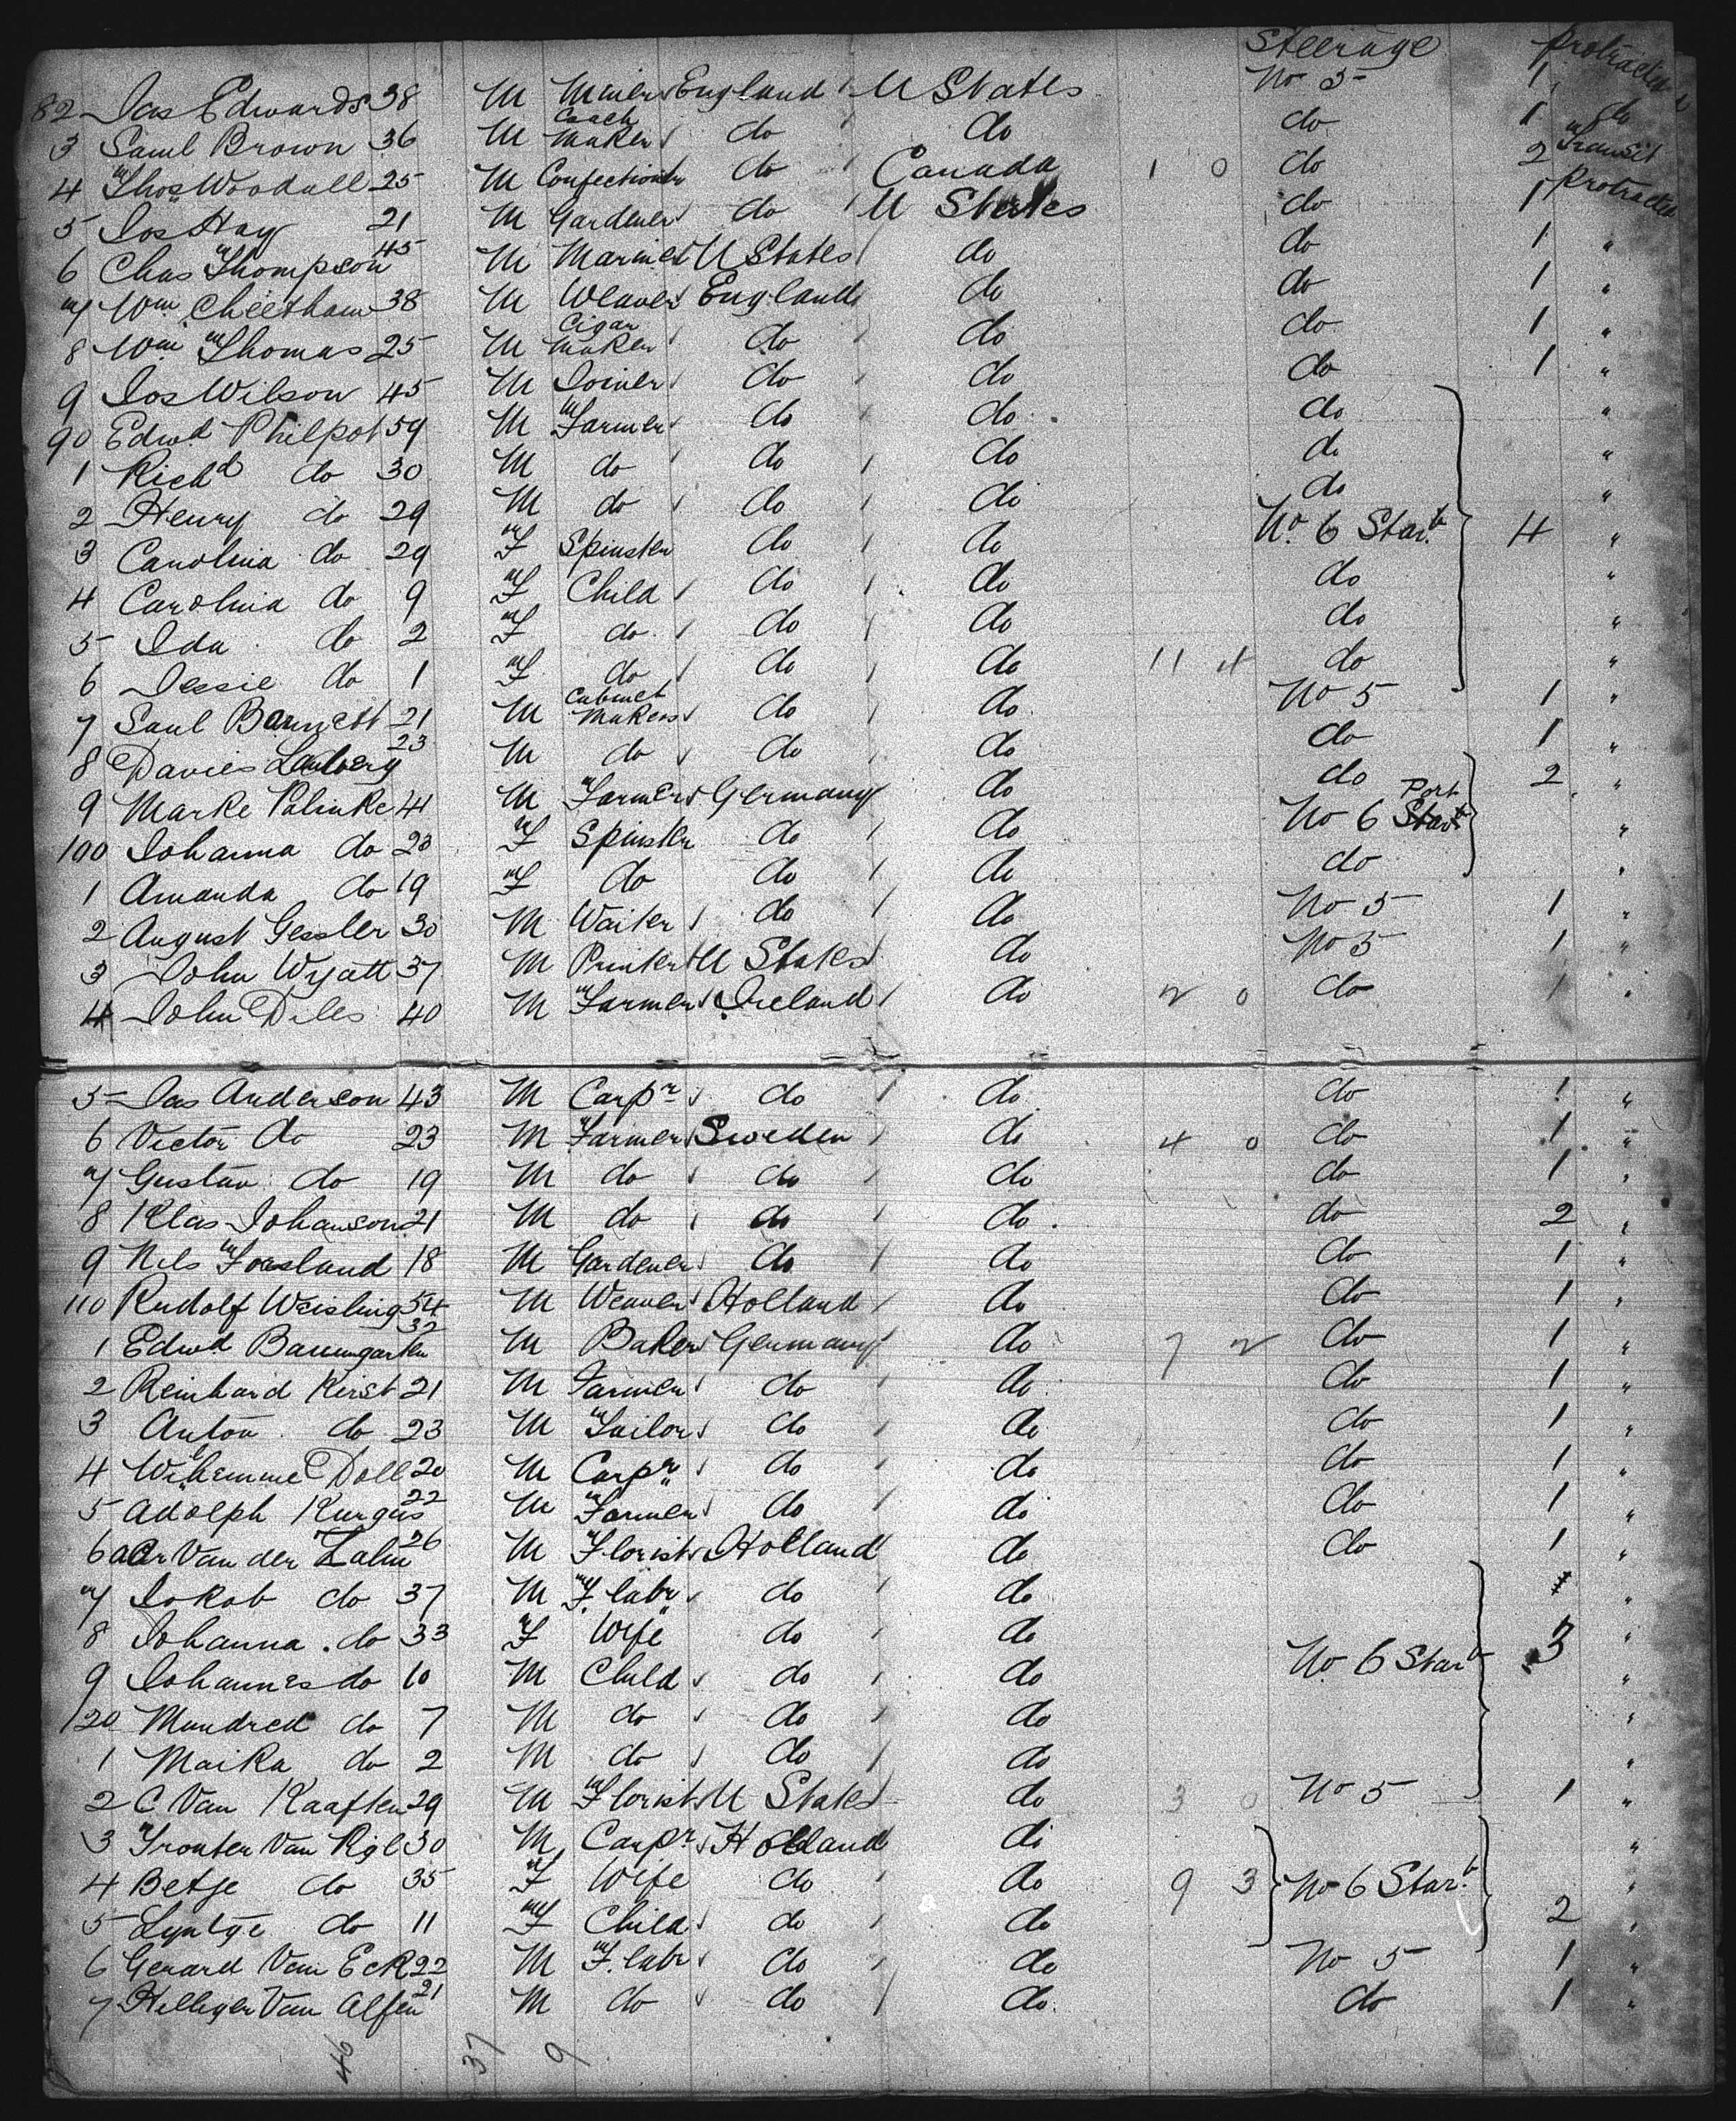 Steerage protracted
82 Jas Edwards 38 M Miner England U States No 5 1
3 Saml Brown 36 M Coach Maker do do do 1 do
4 Thos Woodall 25 M Confectioner do Canada 1 0 do 2 Transit
5 Jos Hay 21 M Gardener do U States do 1 Protracted
6 Chas Thompson 45 M Mariner U States do do 1 "
7 Wm Cheetham 38 M Weaver England do do 1 "
8 Wm Thomas 25 M Cigar Maker do do do 1 "
9 Jos Wilson 45 M Joiner do do do 1 "
90 Edwd Philpot 59 M Farmer do do do "
1 Richd do 30 M do do do do "
2 Henry do 29 M do do do do "
3 Carolina do 29 F Spinster do do No 6 Starb 4 "
4 Carolina do 9 F Child do do do "
5 Ida do 2 F do do do do "
6 Jessie do 1 F do do do 11 4 do "
7 Saul Barnett 21 M Cabinet Makers do do No 5 1 "
8 Davies 23 M do do do do 1 "
9 Marke Palinke 41 M Farmer Germany do do 2 "
100 Johanna do 23 F Spinster do do No 6 Port "
1 Amanda do 19 F do do do do "
2 August Gessler 30 M Waiter do do No 5 1 "
3 John Wyatt 37 M Printer U States do No 5 1 "
4 John Diles 40 M Farmer Ireland do 2 0 do 1 "
5 Jas Anderson 43 M Carpr do do do 1 "
6 Victor do 23 M Farmer Sweden do 4 0 do 1 "
7 Gustav do 19 M do do do do 1 "
8 Klas Johanson 21 M do do do do 2 "
9 Nils Forsland 18 M Gardener do do do 1 "
110 Rudolf Weisling 54 M Weaver Holland do do 1 "
1 Edwd Baumgarten 32 M Baker Germany do 7 2 do 1 "
2 Reinhard Kirst 21 M Farmer do do do 1 "
3 Anton do 23 M Tailor do do do 1 "
4 Wilhemme Doll 20 M Carpr do do do 1 "
5 Adolph Kurgus 22 M Farmer do do do 1 "
6 Adr Van der Zalm 26 M Florist Holland do do 1 "
7 Jakob do 37 M F. labr do do "
8 Johanna do 33 F Wife do do "
9 Johannes do 10 M Child do do No 6 Starb 3 "
120 Mundred do 7 M do do do "
1 Maika do 2 M do do do "
2 C Van Kaaften 29 M Florist U States do 3 0 No 5 1 "
3 Tronter Van Rgl 30 M Carpr Holland do "
4 Betje do 35 F Wife do do 9 3 No 6 Starb "
5 Lyntge do 11 F Child do do 2 "
6 Gerard Van Eck 22 M F. labr do do No 5 1 "
7 Helliger Van Alfen 21 M do do do do 1 "
46 37 9